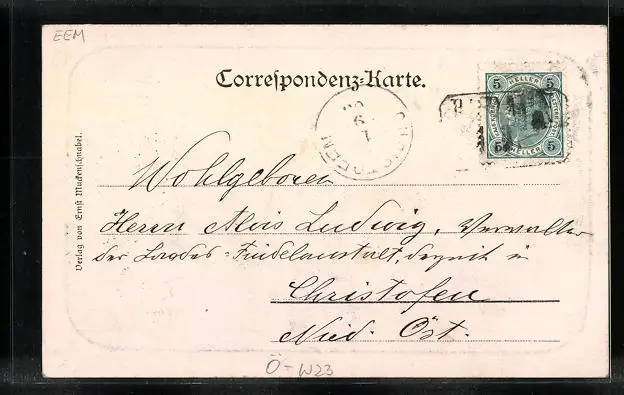 EEM
Correspondenz-Karte.
5 HELLER 5
5 HELLER 5
CHRISTOFEN
1 9
Verlag von Ernst Muckenschnabel.
Wohlgeboren
Herrn Alois Ludwig, Verwalter
der Landes-Findelanstalt, derzeit in
Christofen
Nied. Öst.
Ö-W23